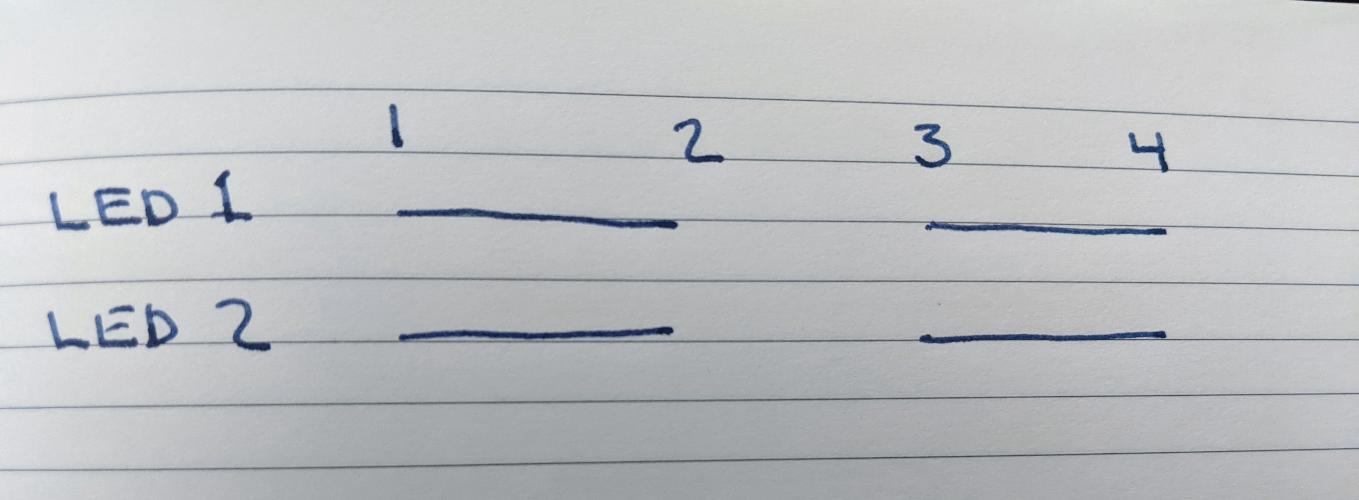 1 2 3 4
LED 1
LED 2